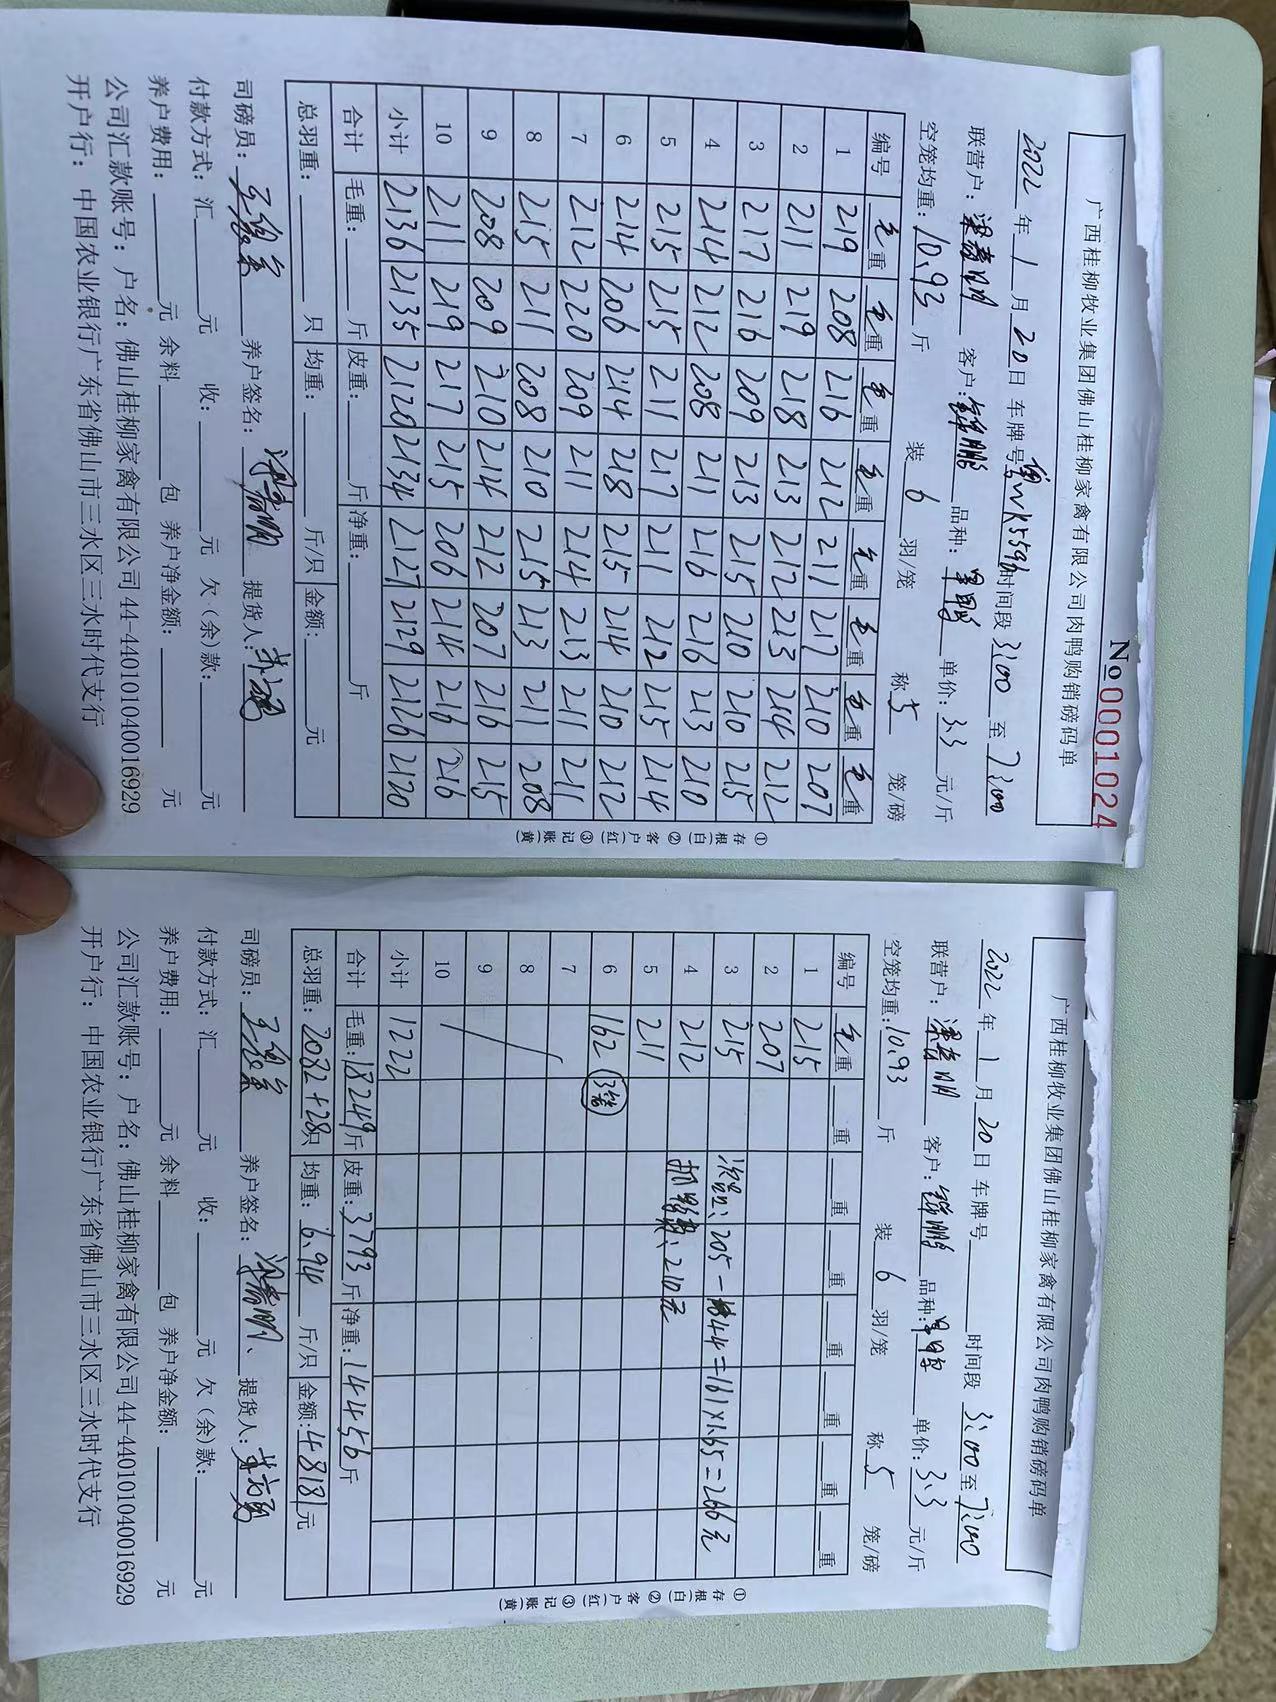 广西桂柳牧业集团佛山桂柳家禽有限公司肉鸭购销磅码单
No 0001024
2022年1月20日 车牌号 时间段 3:00 至 7:00
联营户: 客户: 锦鹏 品种: 单价: 3.3 元/斤
空笼均重: 10.93 斤 装 6 羽/笼 称 5 笼/磅
编号 毛重 毛重 毛重 毛重 毛重 毛重 毛重 毛重
1 219 208 216 212 211 217 210 207
2 211 219 218 213 212 213 214 212
3 217 216 209 213 215 210 210 215
4 214 212 208 211 216 216 213 210
5 215 215 211 217 211 212 215 214
6 214 206 214 218 215 214 210 212
7 212 220 209 211 214 213 211 211
8 215 211 208 210 215 213 211 208
9 208 209 210 214 212 207 216 215
10 211 219 217 215 206 214 216 216
小计 2136 2135 2120 2134 2127 2129 2126 2120
合计 毛重: 斤 皮重: 斤 净重: 斤
总羽重: 只 均重: 斤/只 金额: 元
司磅员: 养户签名: 提货人:
付款方式: 汇 元 收: 元 欠(余)款: 元
养户费用: 元 余料 包 养户净金额: 元
公司汇款账号: 户名: 佛山桂柳家禽有限公司44-440101040016929
开户行: 中国农业银行广东省佛山市三水区三水时代支行
①存根(白) ②客户(红) ③记账(黄)
广西桂柳牧业集团佛山桂柳家禽有限公司肉鸭购销磅码单
2022年1月20日 车牌号 时间段 3:00 至 7:00
联营户: 客户: 锦鹏 品种: 单价: 3.3 元/斤
空笼均重: 10.93 斤 装 6 羽/笼 称 5 笼/磅
编号 毛重 重 重 重 重 重 重 重
1 215
2 207
3 215 次品: 205-44=161×1.65=266元
4 212 210元
5 211
6 162 (3笼)
7
8
9
10
小计 1222
合计 毛重: 18249 斤 皮重: 3793 斤 净重: 14456 斤
总羽重: 2082+28只 均重: 6.94 斤/只 金额: 48181元
司磅员: 养户签名: 提货人:
付款方式: 汇 元 收: 元 欠(余)款: 元
养户费用: 元 余料 包 养户净金额: 元
公司汇款账号: 户名: 佛山桂柳家禽有限公司44-440101040016929
开户行: 中国农业银行广东省佛山市三水区三水时代支行
①存根(白) ②客户(红) ③记账(黄)